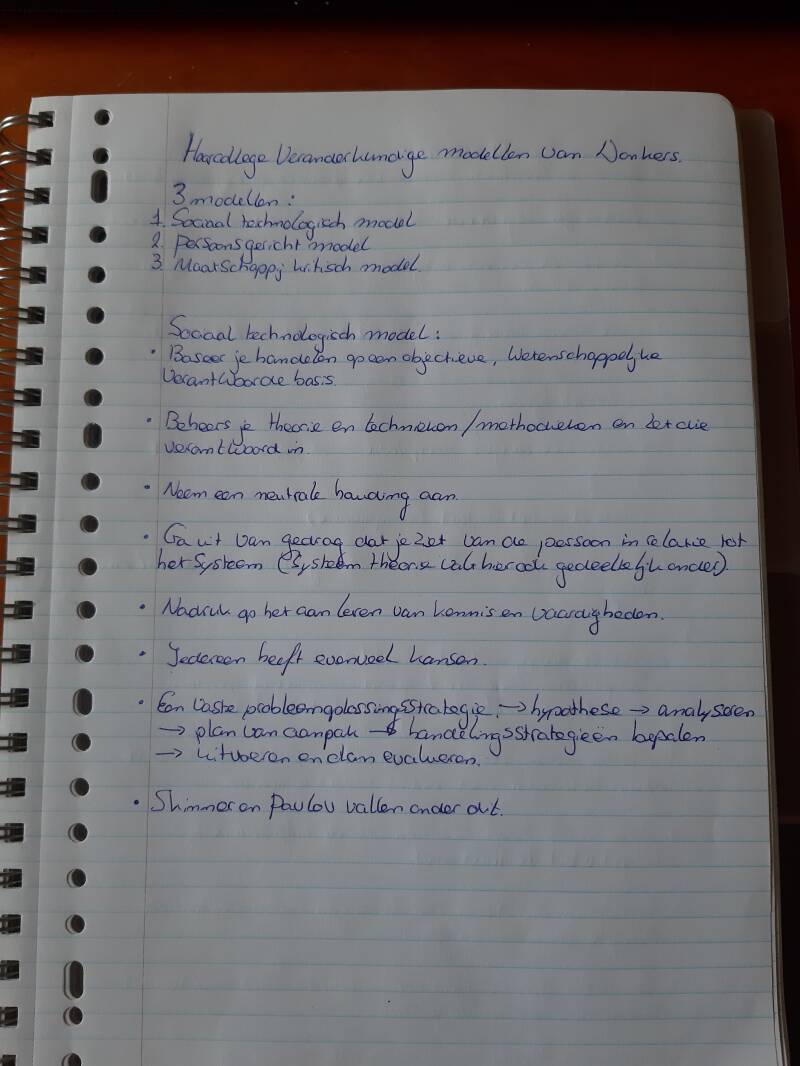 Hoorcollege Veranderkundige modellen van Donkers.
3 modellen:
1. Sociaal technologisch model
2. Persoonsgericht model
3. Maatschappij kritisch model.
Sociaal technologisch model:
• Baseer je handelen op een objectieve, wetenschappelijke
verantwoorde basis.
• Beheers je theorie en technieken/methodieken en zet die
verantwoord in.
• Neem een neutrale houding aan.
• Ga uit van gedrag dat je ziet van de persoon in relatie tot
het systeem (Systeem theorie valt hier ook gedeeltelijk onder)
• Nadruk op het aan leren van kennis en vaardigheden.
• Iedereen heeft evenveel kansen.
• Een vaste probleemoplossingsstrategie, → hypothese → analyseren
→ plan van aanpak → handelingsstrategieën bepalen
→ uitvoeren en dan evalueren.
• Skinner en Pavlov vallen onder dit.